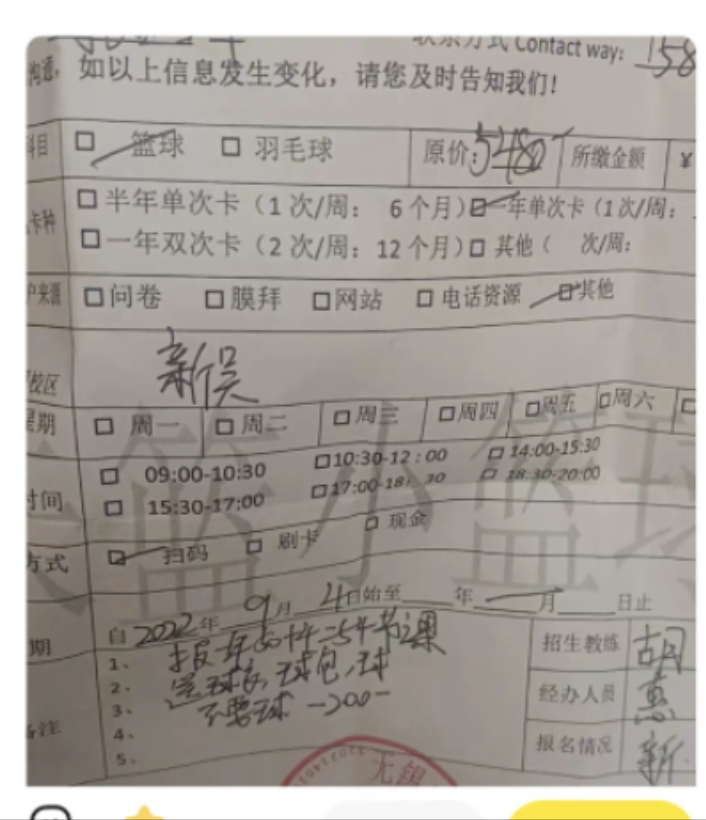 联系方式 Contact way: 158
沟意，如以上信息发生变化，请您及时告知我们！
科目 □ 篮球 □ 羽毛球 原价:5480 所缴金额 ¥
卡种 □半年单次卡（1次/周： 6个月）□一年单次卡（1次/周：
□一年双次卡（2次/周：12个月）□ 其他（ 次/周：
户来源 □问卷 □膜拜 □网站 □电话资源 □其他
校区 新俣
星期 □ 周一 □ 周二 □周三 □周四 □周五 □周六 □
时间 □ 09:00-10:30 □10:30-12：00 □ 14:00-15:30
□ 15:30-17:00 □17:00-18：30 □ 18:30-20:00
方式 □ 扫码 □ 刷卡 □ 现金
期 自2022年9月4日始至 年 月 日止
备注 1、报一年50+4=54节课
2、送球衣，球包，球
3、不要球 -200-
4、
5、
招生教练 胡
经办人员 惠
报名情况 新
无锡
篮小篮球